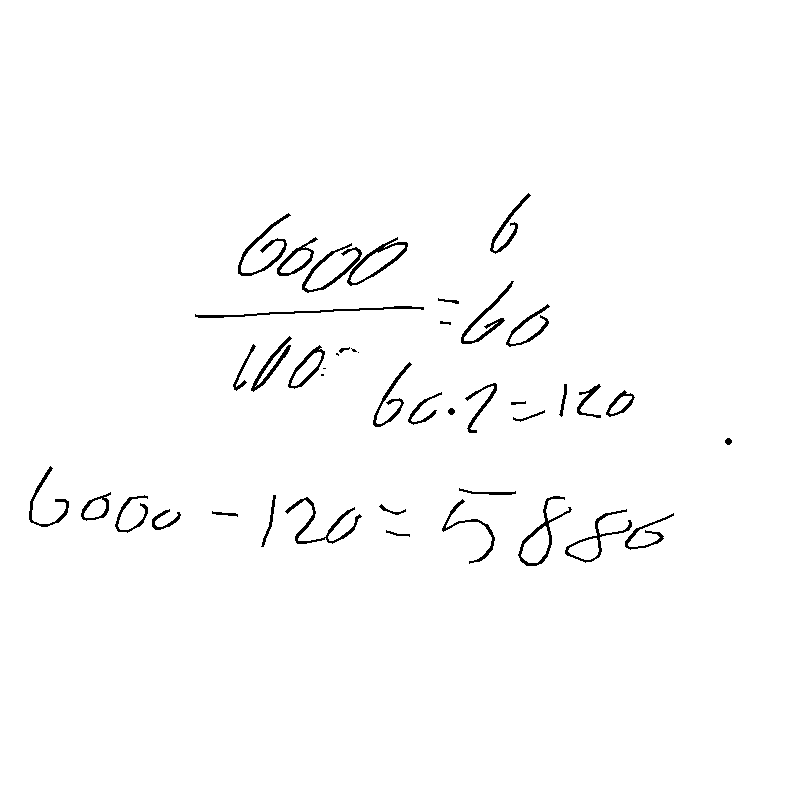 6
6000
= 60
100
60 · 2 = 120
6000 - 120 = 5880